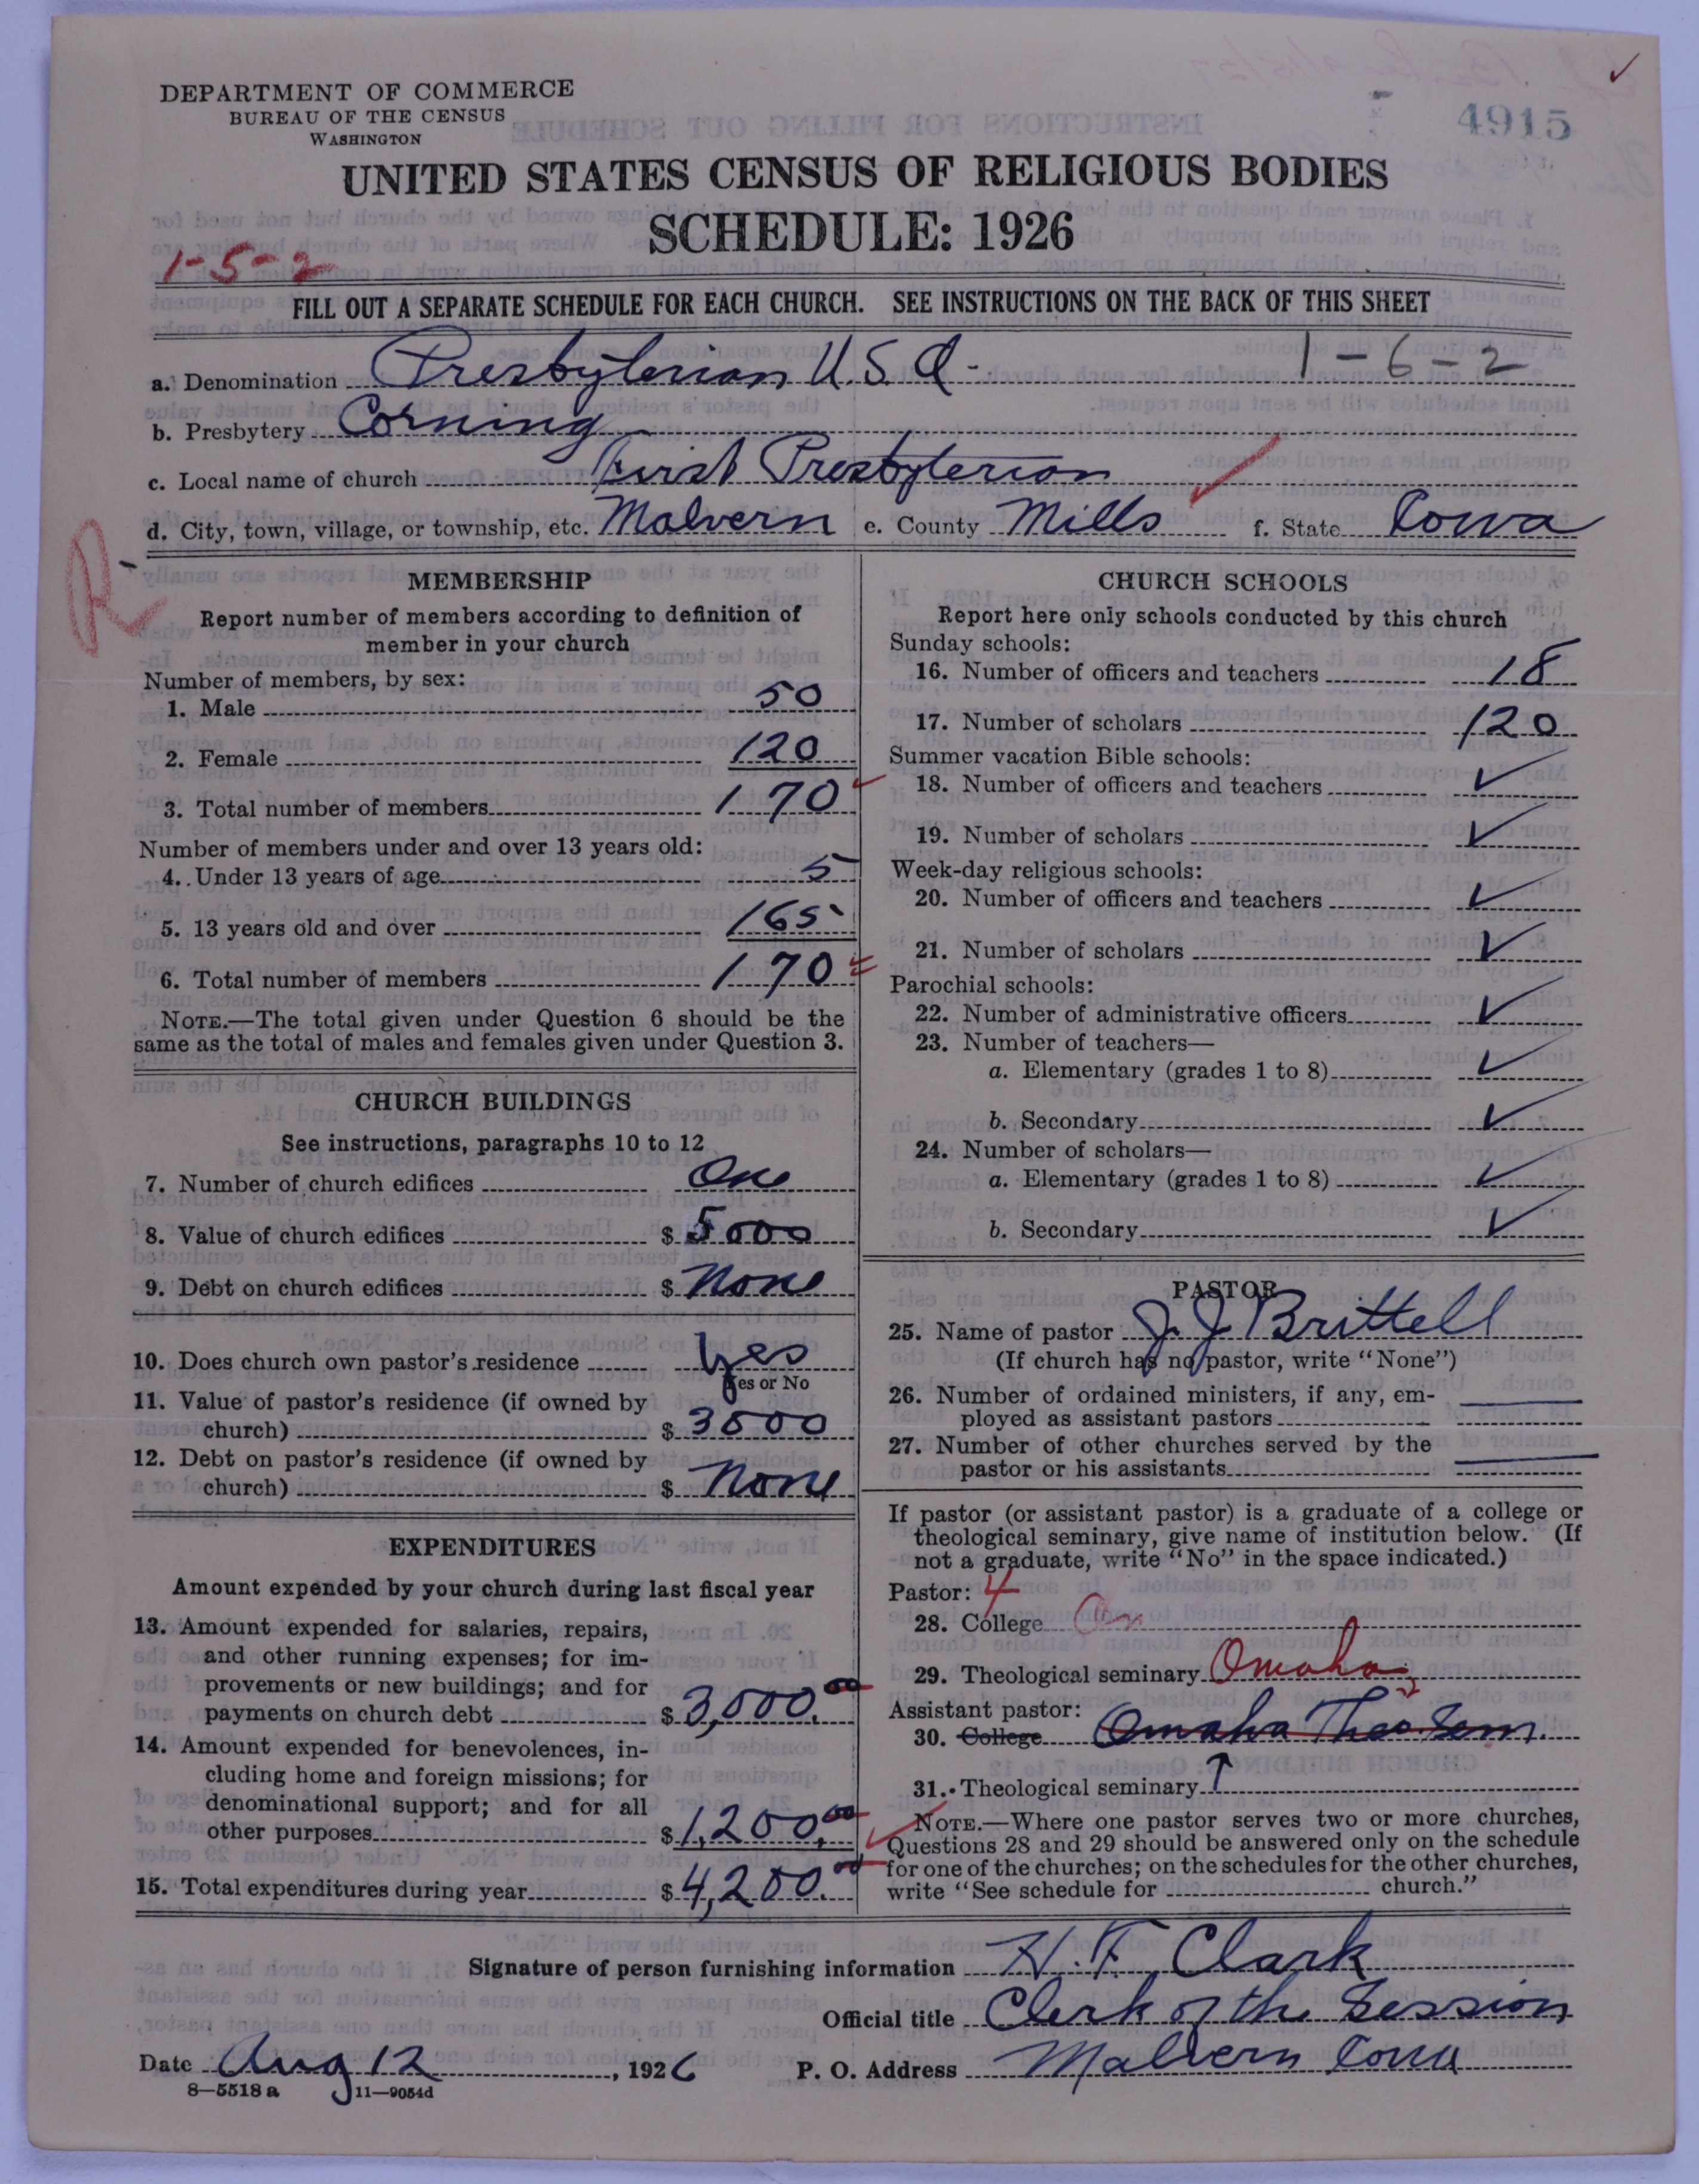 DEPARTMENT OF COMMERCE
BUREAU OF THE CENSUS
WASHINGTON
4915
UNITED STATES CENSUS OF RELIGIOUS BODIES
SCHEDULE: 1926
1-5-2
FILL OUT A SEPARATE SCHEDULE FOR EACH CHURCH. SEE INSTRUCTIONS ON THE BACK OF THIS SHEET
a. Denomination Presbyterian U.S.A. 1-6-2
b. Presbytery Corning
c. Local name of church First Presbyterian
d. City, town, village, or township, etc. Malvern e. County Mills f. State Iowa
R
MEMBERSHIP
Report number of members according to definition of
member in your church
Number of members, by sex:
1. Male 50
2. Female 120
3. Total number of members 170
Number of members under and over 13 years old:
4. Under 13 years of age 5
5. 13 years old and over 165
6. Total number of members 170
NOTE.—The total given under Question 6 should be the
same as the total of males and females given under Question 3.
CHURCH BUILDINGS
See instructions, paragraphs 10 to 12
7. Number of church edifices One
8. Value of church edifices $ 5000
9. Debt on church edifices $ None
10. Does church own pastor's residence Yes
Yes or No
11. Value of pastor's residence (if owned by
church) $ 3500
12. Debt on pastor's residence (if owned by
church) $ None
EXPENDITURES
Amount expended by your church during last fiscal year
13. Amount expended for salaries, repairs,
and other running expenses; for im-
provements or new buildings; and for
payments on church debt $ 3,000.00
14. Amount expended for benevolences, in-
cluding home and foreign missions; for
denominational support; and for all
other purposes $ 1,200.00
15. Total expenditures during year $ 4,200.00
CHURCH SCHOOLS
Report here only schools conducted by this church
Sunday schools:
16. Number of officers and teachers 18
17. Number of scholars 120
Summer vacation Bible schools:
18. Number of officers and teachers ✓
19. Number of scholars ✓
Week-day religious schools:
20. Number of officers and teachers ✓
21. Number of scholars ✓
Parochial schools:
22. Number of administrative officers ✓
23. Number of teachers—
a. Elementary (grades 1 to 8) ✓
b. Secondary ✓
24. Number of scholars—
a. Elementary (grades 1 to 8) ✓
b. Secondary ✓
PASTOR
25. Name of pastor J. J. Brittell
(If church has no pastor, write "None")
26. Number of ordained ministers, if any, em-
ployed as assistant pastors
27. Number of other churches served by the
pastor or his assistants
If pastor (or assistant pastor) is a graduate of a college or
theological seminary, give name of institution below. (If
not a graduate, write "No" in the space indicated.)
Pastor: 4
28. College
29. Theological seminary Omaha
Assistant pastor:
30. College Omaha Theo. Sem.
31. Theological seminary
NOTE.—Where one pastor serves two or more churches,
Questions 28 and 29 should be answered only on the schedule
for one of the churches; on the schedules for the other churches,
write "See schedule for church."
Signature of person furnishing information H. F. Clark
Official title Clerk of the Session
Date Aug 12, 1926 P. O. Address Malvern Iowa
8—5518 a 11—9054d